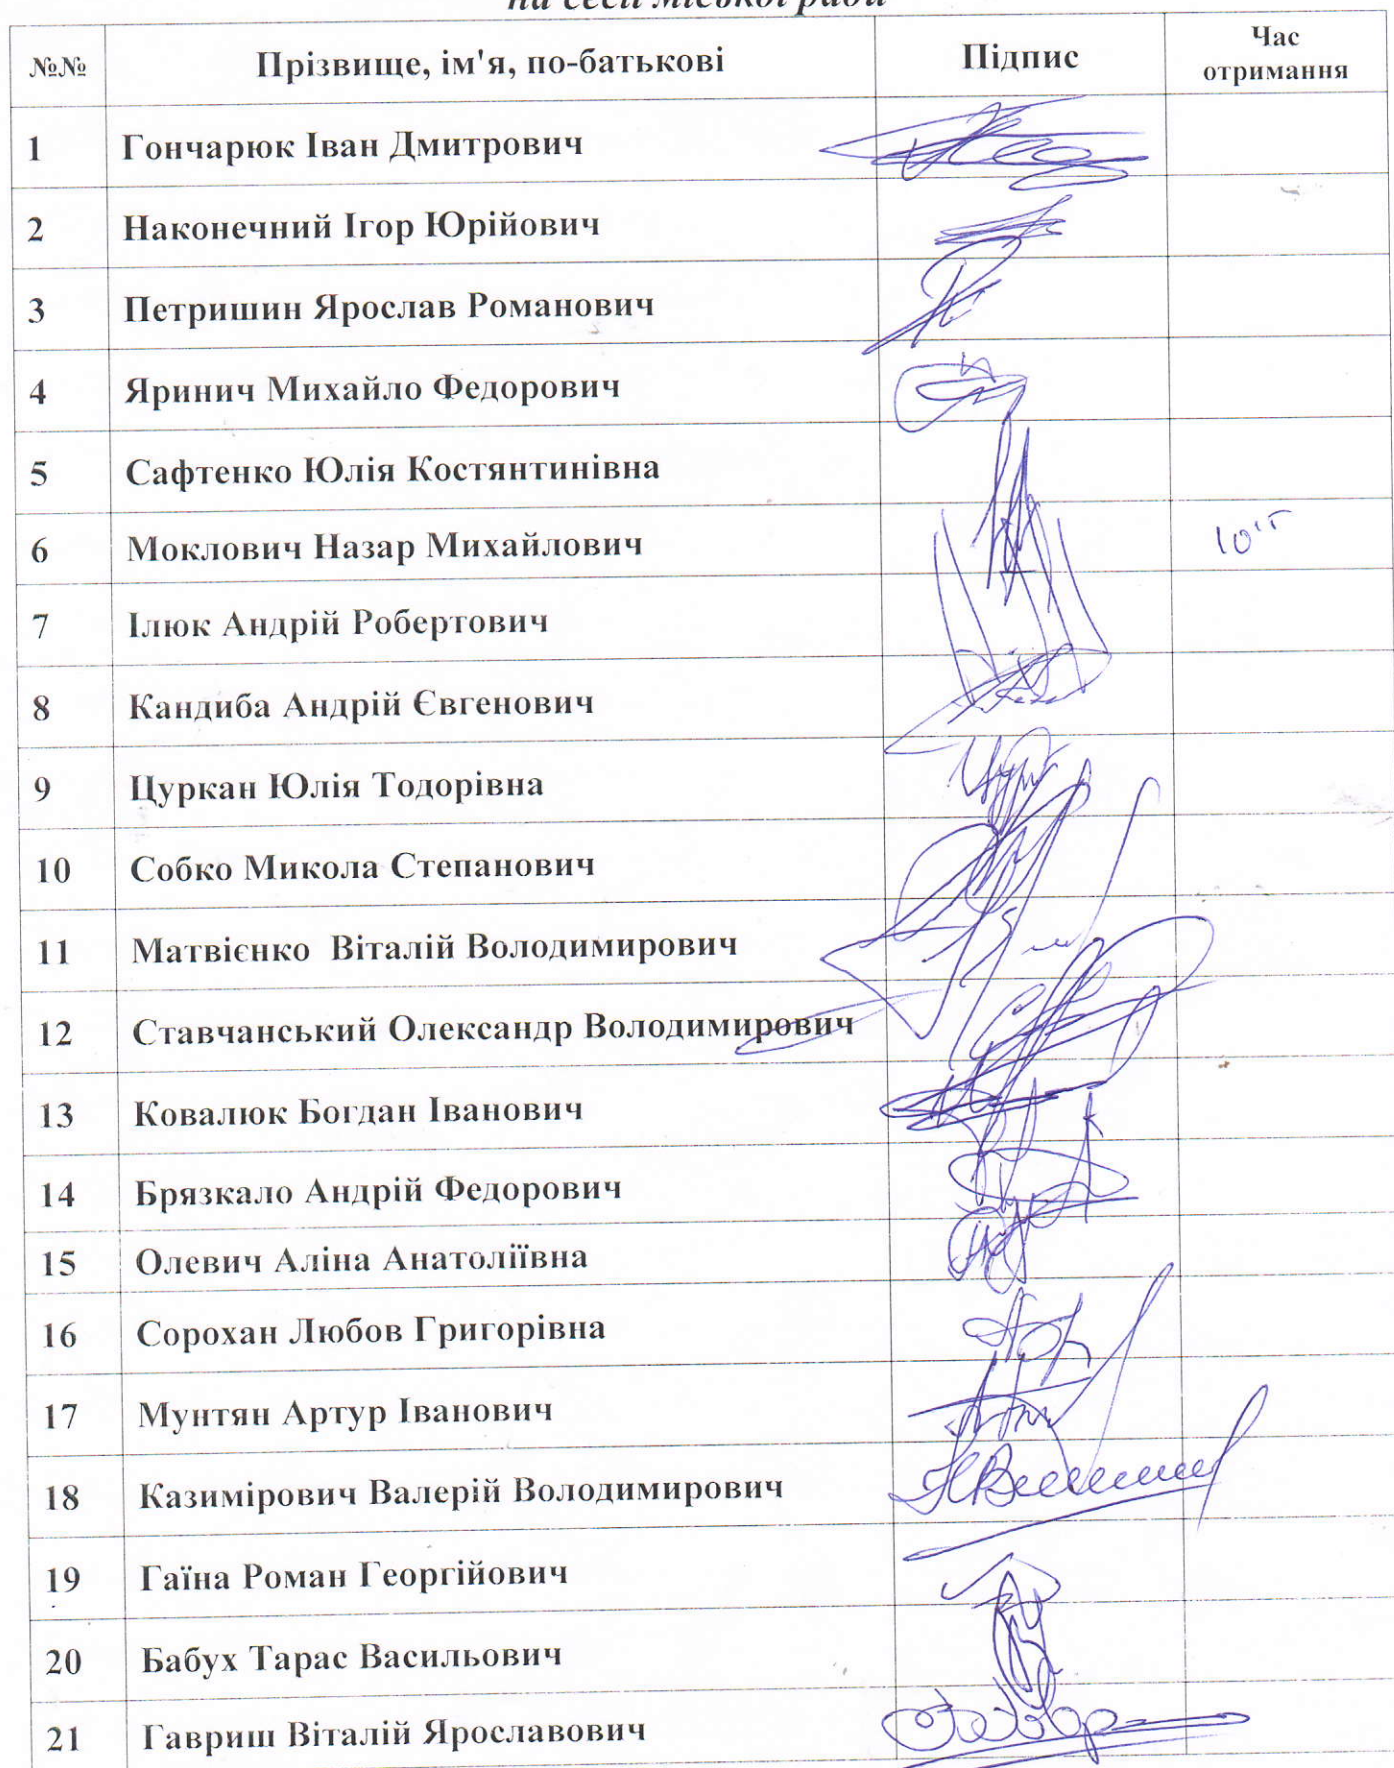 на сесії міської ради
№№ Прізвище, ім'я, по-батькові Підпис Час отримання
1 Гончарюк Іван Дмитрович
2 Наконечний Ігор Юрійович
3 Петришин Ярослав Романович
4 Яринич Михайло Федорович
5 Сафтенко Юлія Костянтинівна
6 Моклович Назар Михайлович
7 Ілюк Андрій Робертович
8 Кандиба Андрій Євгенович
9 Цуркан Юлія Тодорівна
10 Собко Микола Степанович
11 Матвієнко Віталій Володимирович
12 Ставчанський Олександр Володимирович
13 Ковалюк Богдан Іванович
14 Брязкало Андрій Федорович
15 Олевич Аліна Анатоліївна
16 Сорохан Любов Григорівна
17 Мунтян Артур Іванович
18 Казимірович Валерій Володимирович
19 Гаїна Роман Георгійович
20 Бабух Тарас Васильович
21 Гавриш Віталій Ярославович